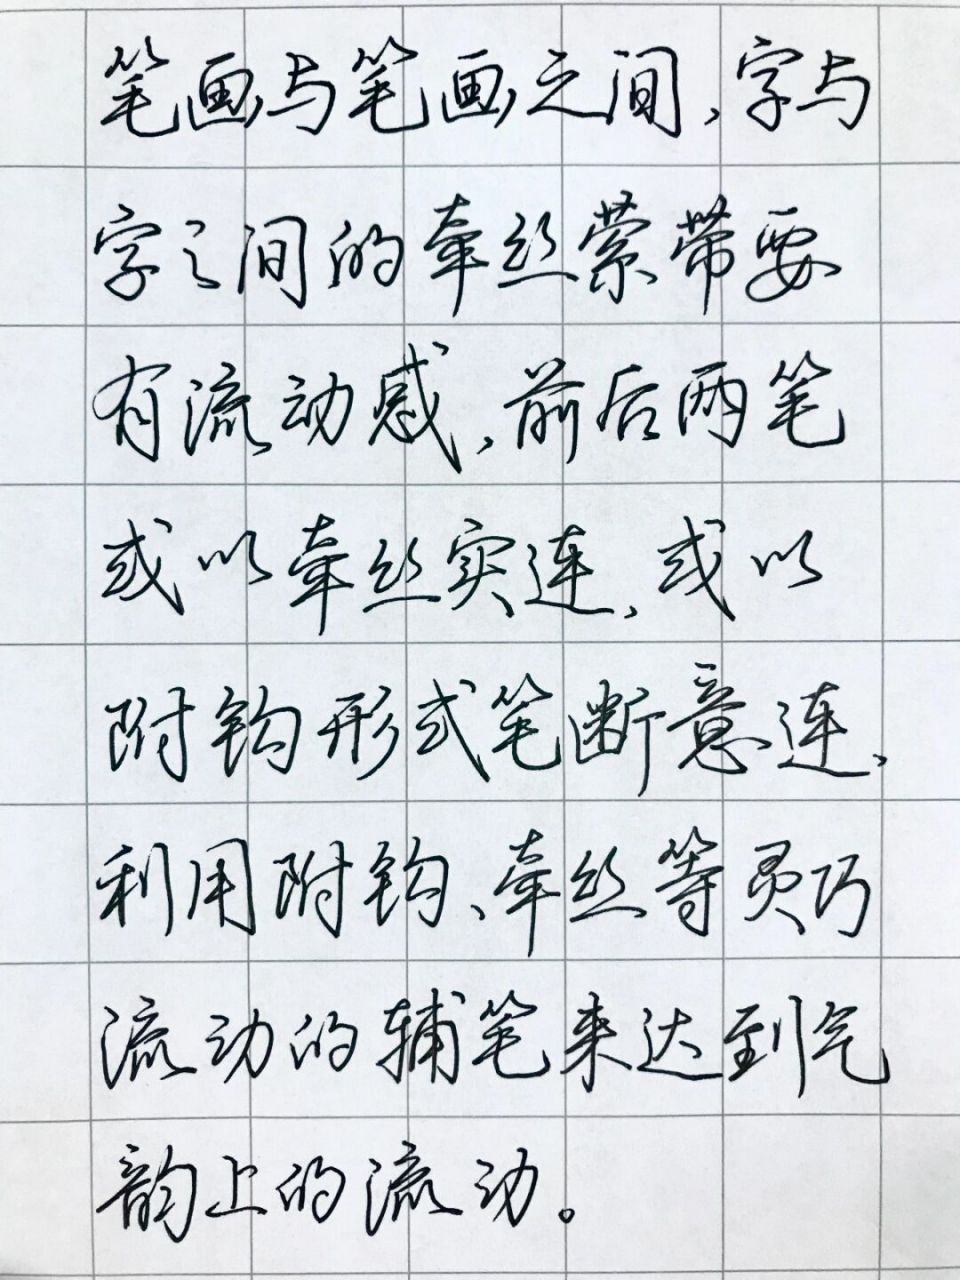 笔画与笔画之间,字与
字之间的牵丝萦带要
有流动感,前后两笔
或以牵丝实连,或以
附钩形式笔断意连、
利用附钩、牵丝等灵巧
流动的辅笔来达到气
韵上的流动。